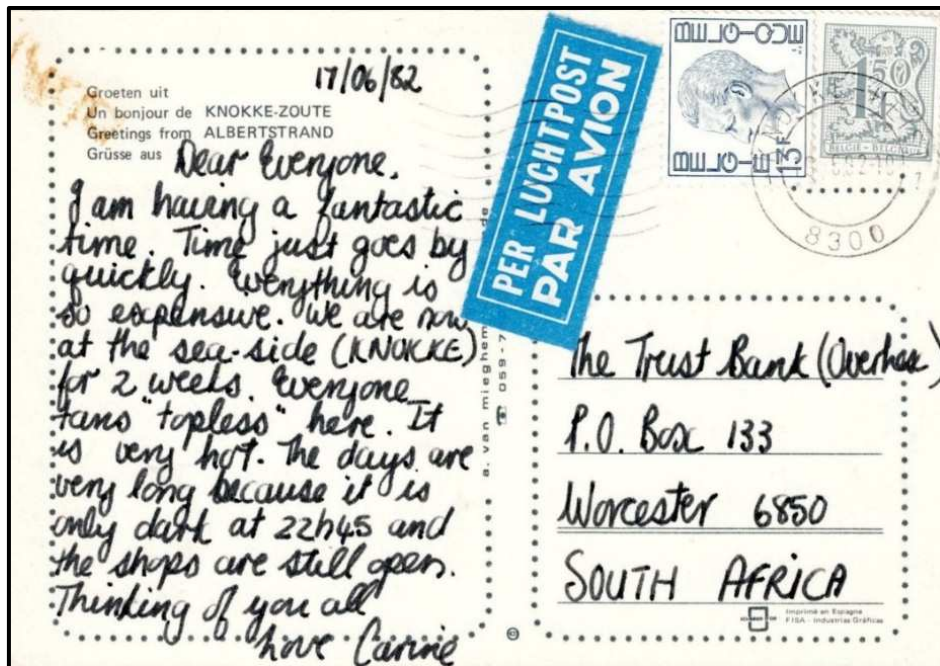 17/06/82
Groeten uit
Un bonjour de KNOKKE-ZOUTE
Greetings from ALBERTSTRAND
Grüsse aus
Dear Everyone,
I am having a fantastic
time. Time just goes by
quickly. Everything is
so expensive. We are now
at the sea-side (KNOKKE)
for 2 weeks. Everyone
tans "topless" here. It
is very hot. The days are
very long because it is
only dark at 22h45 and
the shops are still open.
Thinking of you all
Love Carine
a. van mieghem
059-7
PER LUCHTPOST
PAR AVION
BELGIQUE
BELGIE 13F
1F50
BELGIE - BELGIQUE
8300
The Trust Bank
P.O. Box 133
Worcester 6850
SOUTH AFRICA
Imprimé en Espagne
FISA - Industrias Gráficas
©